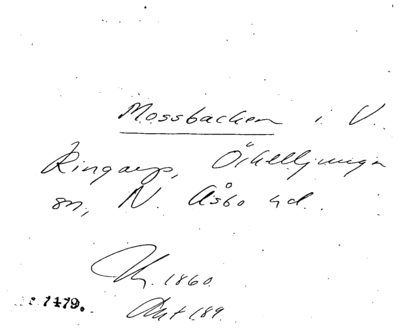 Mossbacken i V.
Ringarp, Örkelljunga
sn, N. Åsbo hd.
1860
: 1479.